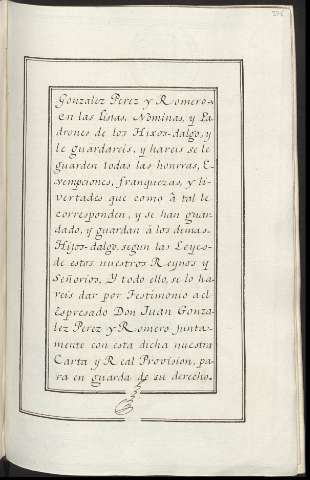 Gonzalez Perez y Romero
en las listas, Nominas, y Pa
drones de los Hixos-dalgo, y
le guardareis, y hareis se le
guarden todas las honrras, E
xempciones, franquezas, y li-
vertades que como à tal le
corresponden, y se han guar
dado, y guardan à los demas
Hijos-dalgo, segun las Leyes
de estos nuestros Reynos y
Señorios, Y todo ello, se lo ha
reis dar por Testimonio a el
Espresado Don Juan Gonza
lez Perez y Romero junta-
mente con esta dicha nuestra
Carta y Real Provision, pa
ra en guarda de su derecho.